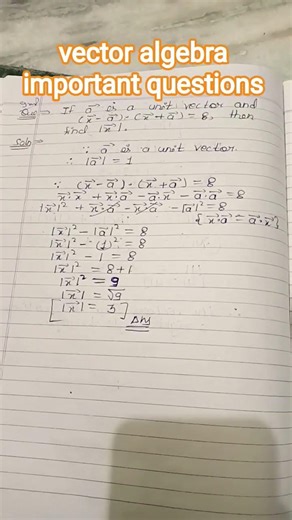 vector algebra
important questions
Que:→ If a⃗ is a unit vector and
(x⃗ - a⃗) · (x⃗ + a⃗) = 8, then
find |x⃗|.
Sol:→
∵ a⃗ is a unit vector.
∴ |a⃗| = 1
∵ (x⃗ - a⃗) · (x⃗ + a⃗) = 8
x⃗·x⃗ + x⃗·a⃗ - a⃗·x⃗ - a⃗·a⃗ = 8
|x⃗|² + x⃗·a⃗ - x⃗·a⃗ - |a⃗|² = 8
{x⃗·a⃗ = a⃗·x⃗}
|x⃗|² - |a⃗|² = 8
|x⃗|² - (1)² = 8
|x⃗|² - 1 = 8
|x⃗|² = 8+1
|x⃗|² = 9
|x⃗| = √9
[|x⃗| = 3]
Ans